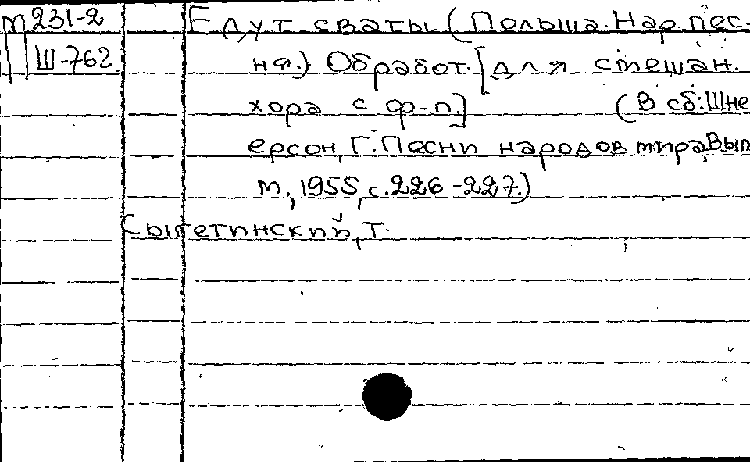 м 231-2
Ш-762
Едут сваты (Польша. Нар. пес-
ня.) Обработ. [для смешан.
хора с ф-п.] (В сб.: Шне
ерсон, Г. Песни народов мира Вып
м, 1955, с. 226-227.)
Сыгетинский, Т.